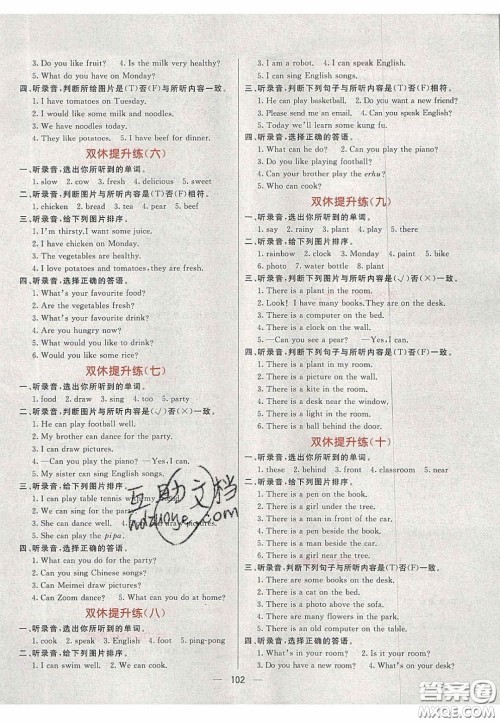 3. Do you like fruit?  4. Is the milk very healthy?
5. What do you have on Monday?
四、听录音,判断所给图片是(T)否(F)与所听内容一致。
1. I have tomatoes on Tuesday.
2. I would like some milk and noodles.
3. We have noodles today.
4. They like potatoes.  5. I have beef for dinner.
双休提升练(六)
一、听录音,选出你所听到的单词。
1. slow  2. cow  3. fresh  4. delicious  5. sweet
二、听录音,判断图片与所听内容是(T)否(F)相符。
1. chicken  2. bread  3. tea  4. pear  5. beef
三、听录音,给下列图片排序。
1. I'm thirsty,I want some juice.
2. I have chicken on Monday.
3. The vegetables are healthy.
4. I love potatoes and tomatoes,they are fresh.
四、听录音,选择正确的答语。
1. What's your favourite food?
2. Are the vegetables fresh?
3. What's your favourite drink?
4. Are you hungry now?
5. What would you like to drink?
6. Would you like some rice?
双休提升练(七)
一、听录音,选出你所听到的单词。
1. food  2. draw  3. sing  4. too  5. do
二、听录音,判断图片与所听内容是(√)否(×)一致。
1. He can play football well.
2. My brother can dance for the party.
3. I can draw pictures.
4. —Can you play the piano? —Yes,I can.
5. My sister can sing English songs.
三、听录音,给下列图片排序。
1. I can play table tennis with my
2. We can sing for the party.
3. She can dance well.  4. draw pictures.
5. She can play the pipa.
四、听录音,选择正确的答语。
1. What can you do for the party?
2. Can you sing Chinese songs?
3. Can Meimei draw pictures?
4. Can Zoom dance?  5. What can you do at home?
双休提升练(八)
一、听录音,选出你所听到的单词。
1. cook  2. speak  3. English  4. foot  5. ping-pong
二、听录音,给下列图片排序。
1. I can swim well.  2. We can cook.
3. I am a robot.  4. I can speak English.
5. I can sing English songs.
三、听录音,判断下列句子与所听内容是(T)否(F)相符。
1. He can play basketball.  2. Do you want a new friend?
3. Please send me an email.  4. I can speak English.
5. Today we'll learn some kung fu.
四、听录音,选择正确的答语。
1. What can he do?  2. Can you play the piano?
3. Can you play ping-pong?
4. Can your brother play the erhu?
5. Who can cook?
双休提升练(九)
一、听录音,选出你所听到的单词。
1. say  2. rainy  3. plant  4. play  5. plant
二、听录音,给下列图片排序。
1. rainbow  2. clock  3. water  4. plant  5. bike
6. photo  7. water bottle  8. plant
三、听录音,判断下列图片与所听内容是(√)否(×)一致。
1. There is a plant in the room.
2. Look! I have many books.They are on the desk.
3. There is a computer on the bed.
4. There is a clock on the wall.
5. —Can you see a pear? —Yes,I can.
四、听录音,判断下列句子与所听内容是(T)否(F)一致。
1. There is a plant in the room.
2. There is a picture on the wall.
3. There is a kite in the room.
4. There is a clock on the wall.
5. There is a bike in the room.
6. There is a ball behind the door.
双休提升练(十)
一、听录音,选出你所听到的单词。
1. these  2. behind  3. front  4. classroom  5. near
二、听录音,给下列图片排序。
1. There is a pen on the book.
2. There is a girl under the tree.
3. There is a man in front of the car.
4. There is a cat behind the box.
5. There is a girl near the tree.
三、听录音,判断下列句子与所听内容是(T)否(F)一致。
1. There are some books on the desk.
2. There are some flowers in my room.
3. There is a photo above the sofa.
4. There are so many books here.
5. There is a pen on the book.
四、听录音,选择正确的答语。
1. Where is the ball?  2. Is this your room?
3. Do you have a new room?  4. What's on your desk?
102
互助文档
hdzuoye.com
答案圈
MXQE.COM